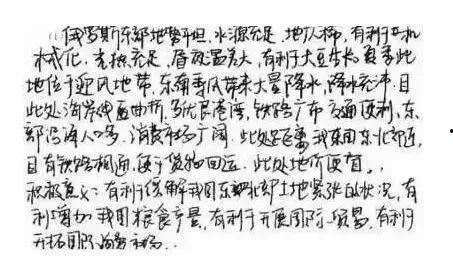 (1)俄罗斯东部地势平坦,水源充足,地广人稀,有利于机
械化。光热充足,昼夜温差大,有利于大豆生长。夏季此
地位于迎风地带,东南季风带来大量降水,降水充沛。且
此处海岸线曲折,多优良港湾,铁路广布,交通便利,东
部沿海人口多,消费市场广阔。此处距离我国东北部近,
且有铁路相连,便于货物回运。此处地价便宜。
积极意义:有利于缓解我国东北部土地紧张的状况,有
利增加我国粮食产量,有利于开展国际贸易,有利于
开拓国际海外市场.